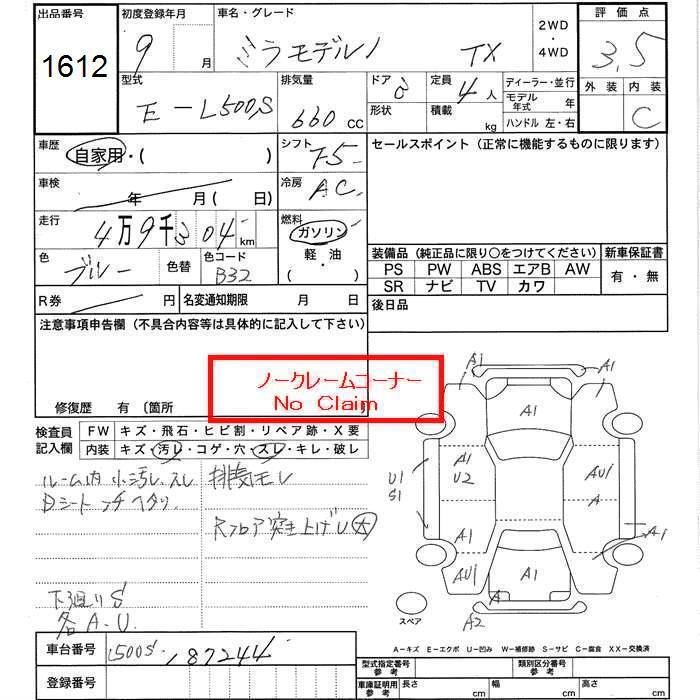 出品番号 初度登録年月 車名・グレード 2WD ・ 4WD 評価点
1612 9 月 ミラモデルノ TX 3.5
外装 内装 C
型式 排気量 ドア 定員 ディーラー・並行
E-L500S 660 CC 4 人 モデル年式 年
形状 積載 kg ハンドル 左・右
車歴 自家用・( ) シフト F5 セールスポイント (正常に機能するものに限ります)
車検 年 月( 日) 冷房 AC
走行 4万9千304 km 燃料 ガソリン・軽・油 ( )
色 ブルー 色替 色コード B32
装備品 (純正品に限り○をつけてください) 新車保証書
PS PW ABS エアB AW 有・無
SR ナビ TV カワ
R券 円 名変通知期限 月 日 後日品
注意事項申告欄 (不具合内容等は具体的に記入して下さい)
ノークレームコーナー
No Claim
修復歴 有 〔箇所
検査員記入欄 FW キズ・飛石・ヒビ割・リペア跡・X要
内装 キズ・汚レ・コゲ・穴・スレ・キレ・破レ
ルーム内 小汚レ、スレ 排気モレ
Dシート ヘタリ
Rフロア突き上げU大
下廻りS
各A・U
A1 A1
A1
A1 U2 AU1
U1 S1 A
A1 A1
AU1 A1
A
A2
スペア
A-キズ E-エクボ U-凹み W-補修跡 S-サビ C-腐食 XX-交換済
車台番号 L500S-187244
登録番号
型式指定番号 参考 類別区分番号 参考
車庫証明用 参考 長さ cm 幅 cm 高さ cm